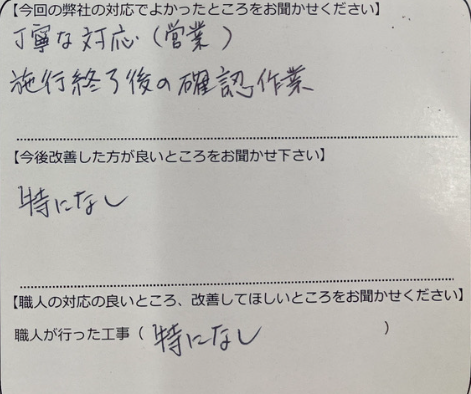 【今回の弊社の対応でよかったところをお聞かせください】
丁寧な対応（営業）
施行終了後の確認作業
【今後改善した方が良いところをお聞かせ下さい】
特になし
【職人の対応の良いところ、改善してほしいところをお聞かせください】
職人が行った工事（ 特になし ）